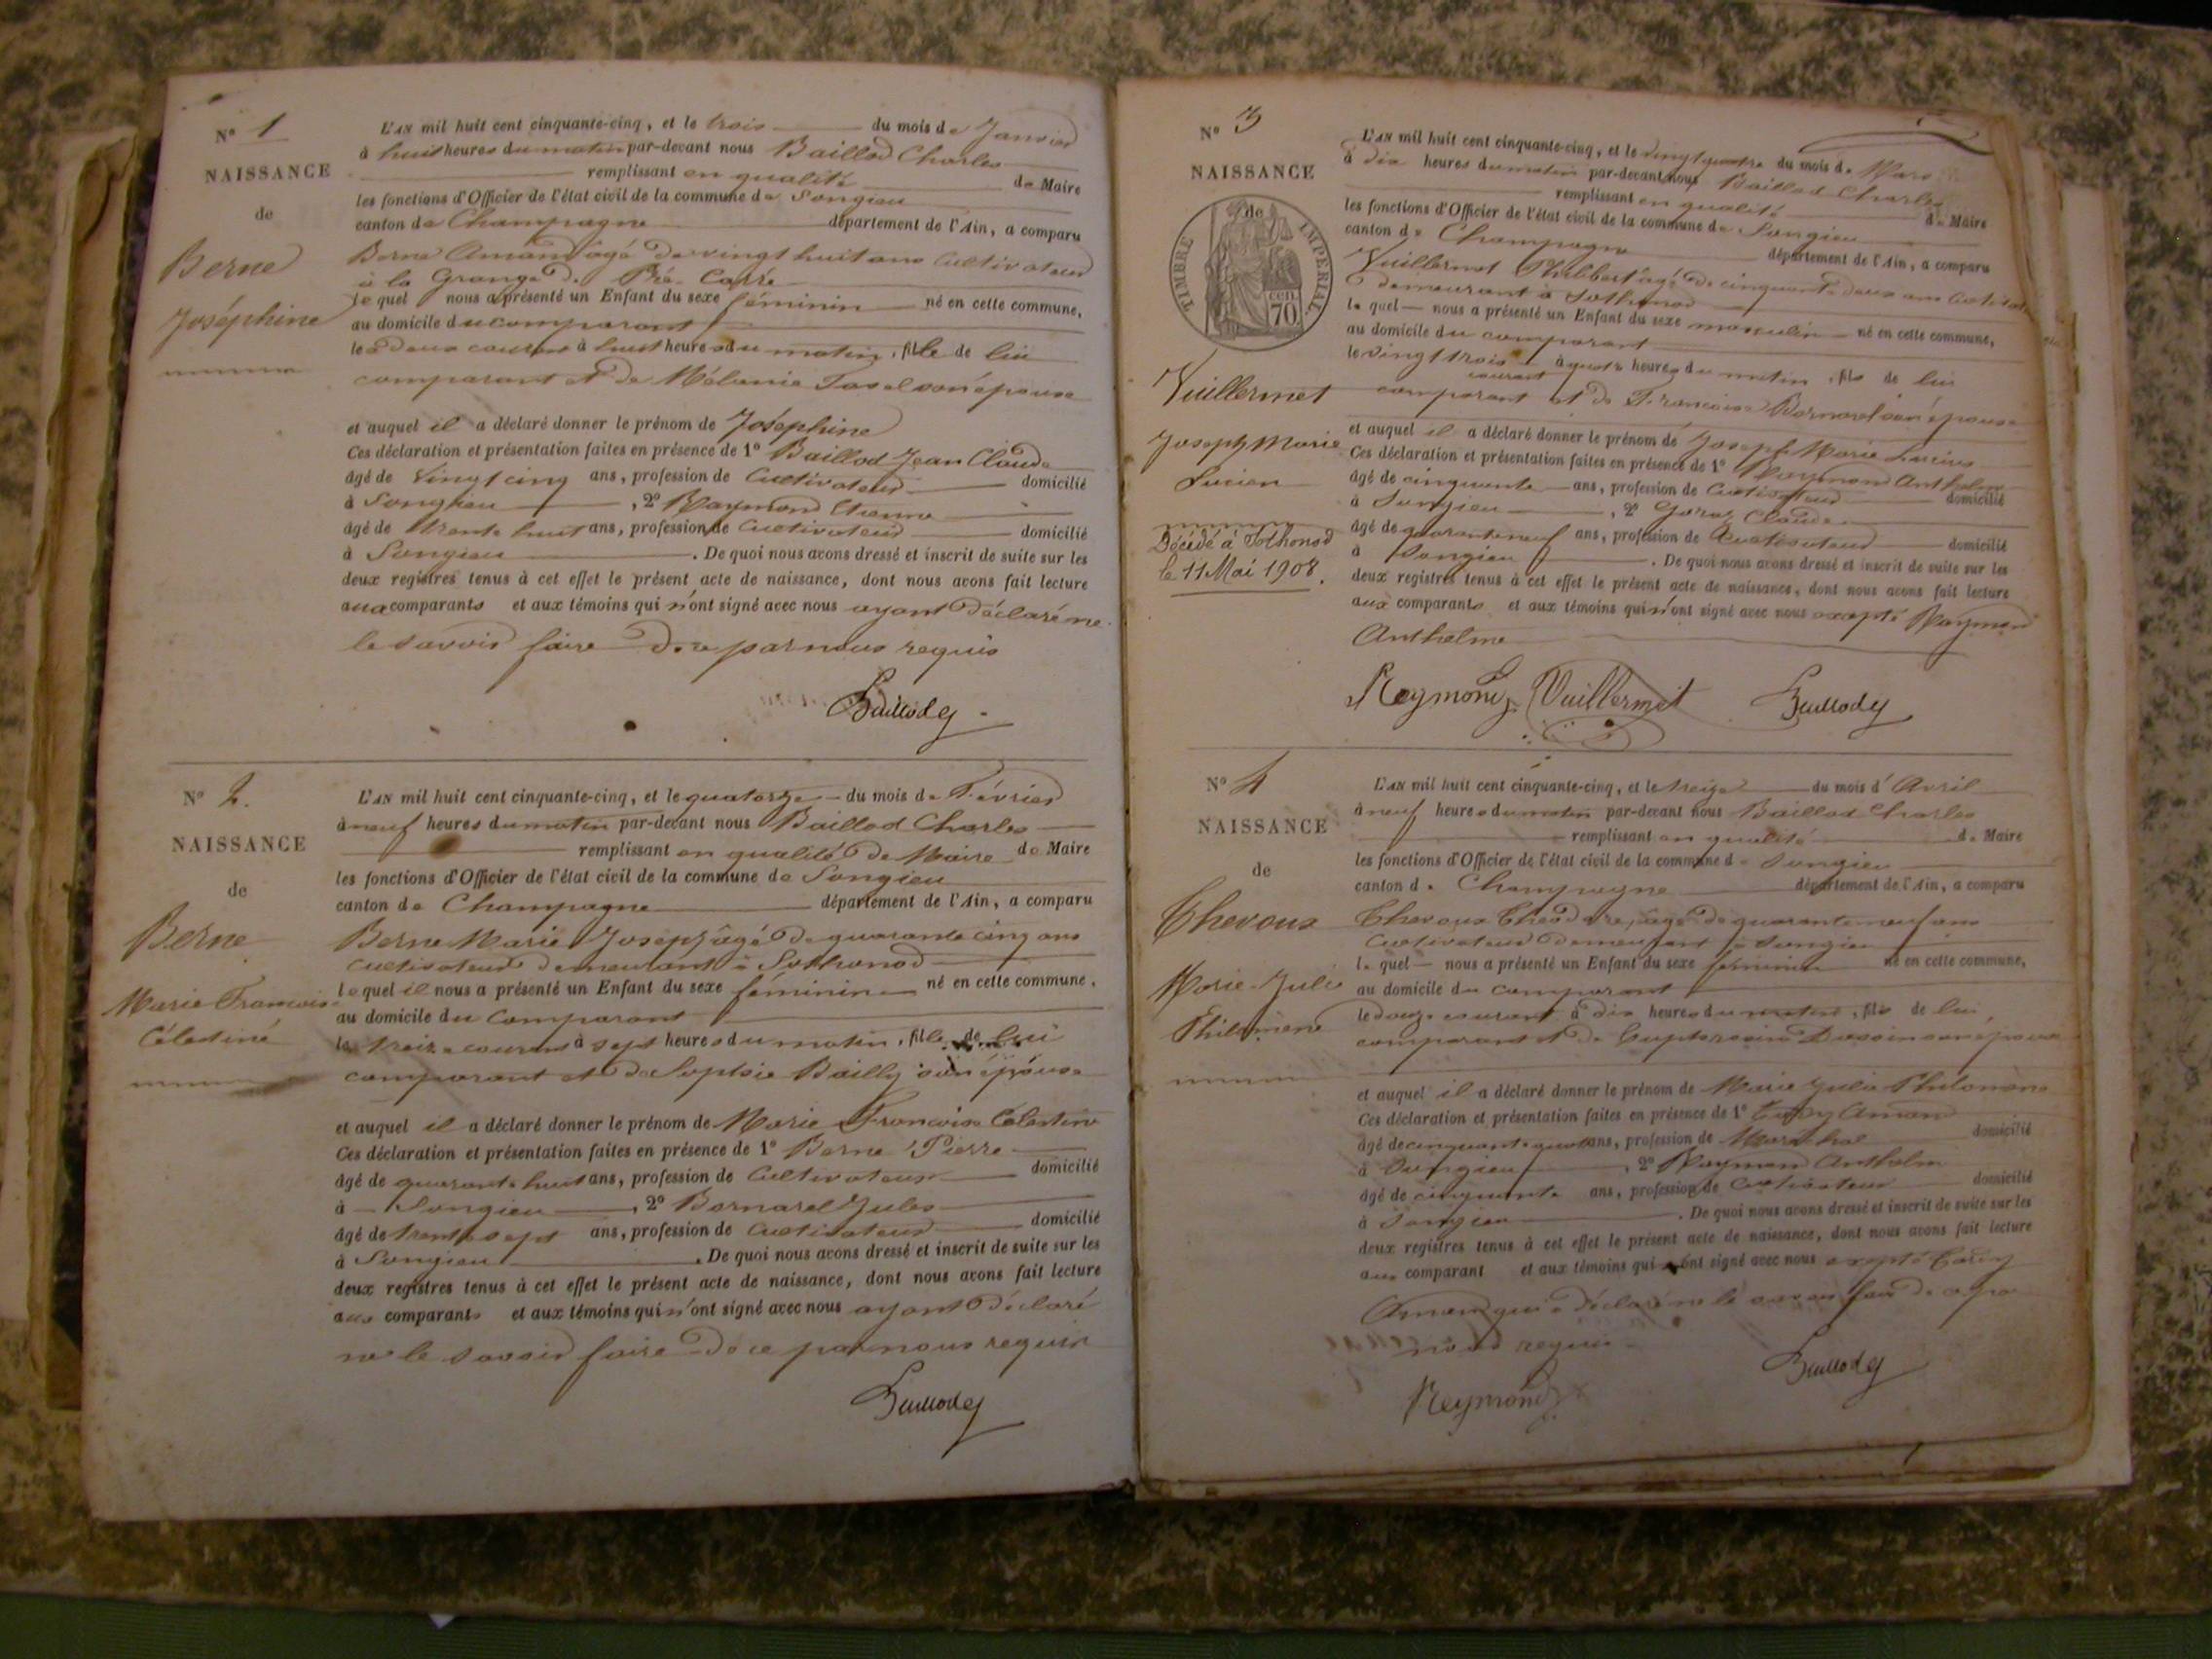 Nº 1
NAISSANCE
de
Berne
Joséphine
L'AN mil huit cent cinquante-cinq, et le trois du mois de Janvier
à huit heures du matin par-devant nous Baillod Charles
remplissant en qualité de Maire
les fonctions d'Officier de l'état civil de la commune de Songieu
canton de Champagne département de l'Ain, a comparu
Berne Amand âgé de vingt huit ans Cultivateur
à la Grange de Pré Carré
lequel nous a présenté un Enfant du sexe féminin né en cette commune,
au domicile du comparant
le deux courant à huit heures du matin, fille de lui
comparant et de Mélanie son épouse
et auquel il a déclaré donner le prénom de Joséphine
Ces déclaration et présentation faites en présence de 1º Baillod Jean Claude
âgé de Vingt cinq ans, profession de Cultivateur domicilié
à Songieu, 2º Raymond Etienne
âgé de trente huit ans, profession de Cultivateur domicilié
à Songieu. De quoi nous avons dressé et inscrit de suite sur les
deux registres tenus à cet effet le présent acte de naissance, dont nous avons fait lecture
aux comparants et aux témoins qui n'ont signé avec nous ayant déclaré ne
le savoir faire de ce par nous requis
Baillod
Nº 2.
NAISSANCE
de
Berne
Marie Francoise
Célestine
L'AN mil huit cent cinquante-cinq, et le quatorze du mois de Février
à neuf heures du matin par-devant nous Baillod Charles
remplissant en qualité de Maire de Maire
les fonctions d'Officier de l'état civil de la commune de Songieu
canton de Champagne département de l'Ain, a comparu
Berne Marie Joseph âgé de quarante cinq ans
cultivateur demeurant à Sothonod
lequel il nous a présenté un Enfant du sexe féminin né en cette commune,
au domicile du Comparant
le treize courant à sept heures du matin, fille de lui
comparant et de Sophie Bailly son épouse
et auquel il a déclaré donner le prénom de Marie Francoise Célestine
Ces déclaration et présentation faites en présence de 1º Berne Pierre
âgé de quarante huit ans, profession de Cultivateur domicilié
à Songieu, 2º Bornarel Jules
âgé de trente sept ans, profession de Cultivateur domicilié
à Songieu. De quoi nous avons dressé et inscrit de suite sur les
deux registres tenus à cet effet le présent acte de naissance, dont nous avons fait lecture
aux comparants et aux témoins qui n'ont signé avec nous ayant déclaré
ne le savoir faire de ce par nous requis
Baillod
Nº 3
NAISSANCE
de
TIMBRE IMPERIAL
CEN. 70
Vuillermet
Joseph Marie
Lucien
Décédé à Sothonod
le 11 Mai 1908.
L'AN mil huit cent cinquante-cinq, et le vingt quatre du mois de Mars
à dix heures du matin par-devant nous Baillod Charles
remplissant en qualité de Maire
les fonctions d'Officier de l'état civil de la commune de Songieu
canton de Champagne département de l'Ain, a comparu
Vuillermet Philibert âgé de cinquante deux ans
demeurant à Sothonod
lequel nous a présenté un Enfant du sexe masculin né en cette commune,
au domicile du comparant
le vingt trois courant à quatre heures du matin, fils de lui
comparant et de Francoise Bornarel son épouse
et auquel il a déclaré donner le prénom de Joseph Marie Lucien
Ces déclaration et présentation faites en présence de 1º Raymond Anthelme
âgé de cinquante ans, profession de Cultivateur domicilié
à Songieu, 2º Claude
âgé de quarante neuf ans, profession de Cultivateur domicilié
à Songieu. De quoi nous avons dressé et inscrit de suite sur les
deux registres tenus à cet effet le présent acte de naissance, dont nous avons fait lecture
aux comparants et aux témoins qui n'ont signé avec nous excepté Raymond
Anthelme
Reymond Vuillermet Baillod
Nº 4
NAISSANCE
de
Chevoux
Marie Julie
Philomène
L'AN mil huit cent cinquante-cinq, et le treize du mois d'Avril
à neuf heures du matin par-devant nous Baillod Charles
remplissant en qualité de Maire
les fonctions d'Officier de l'état civil de la commune de Songieu
canton de Champagne département de l'Ain, a comparu
Chevoux Théodore, âgé de quarante neuf ans
Cultivateur demeurant à Songieu
lequel nous a présenté un Enfant du sexe féminin né en cette commune,
au domicile du comparant
le douze courant à dix heures du matin, fils de lui
comparant et de son épouse
et auquel il a déclaré donner le prénom de Marie Julie Philomène
Ces déclaration et présentation faites en présence de 1º Aman
âgé de cinquante quatre ans, profession de Maréchal domicilié
à Songieu, 2º Raymond Anthelm
âgé de cinquante ans, profession de Cultivateur domicilié
à Songieu. De quoi nous avons dressé et inscrit de suite sur les
deux registres tenus à cet effet le présent acte de naissance, dont nous avons fait lecture
aux comparant et aux témoins qui ont signé avec nous excepté
Aman qui a déclaré ne le savoir faire de ce par
nous requis
Reymond Baillod